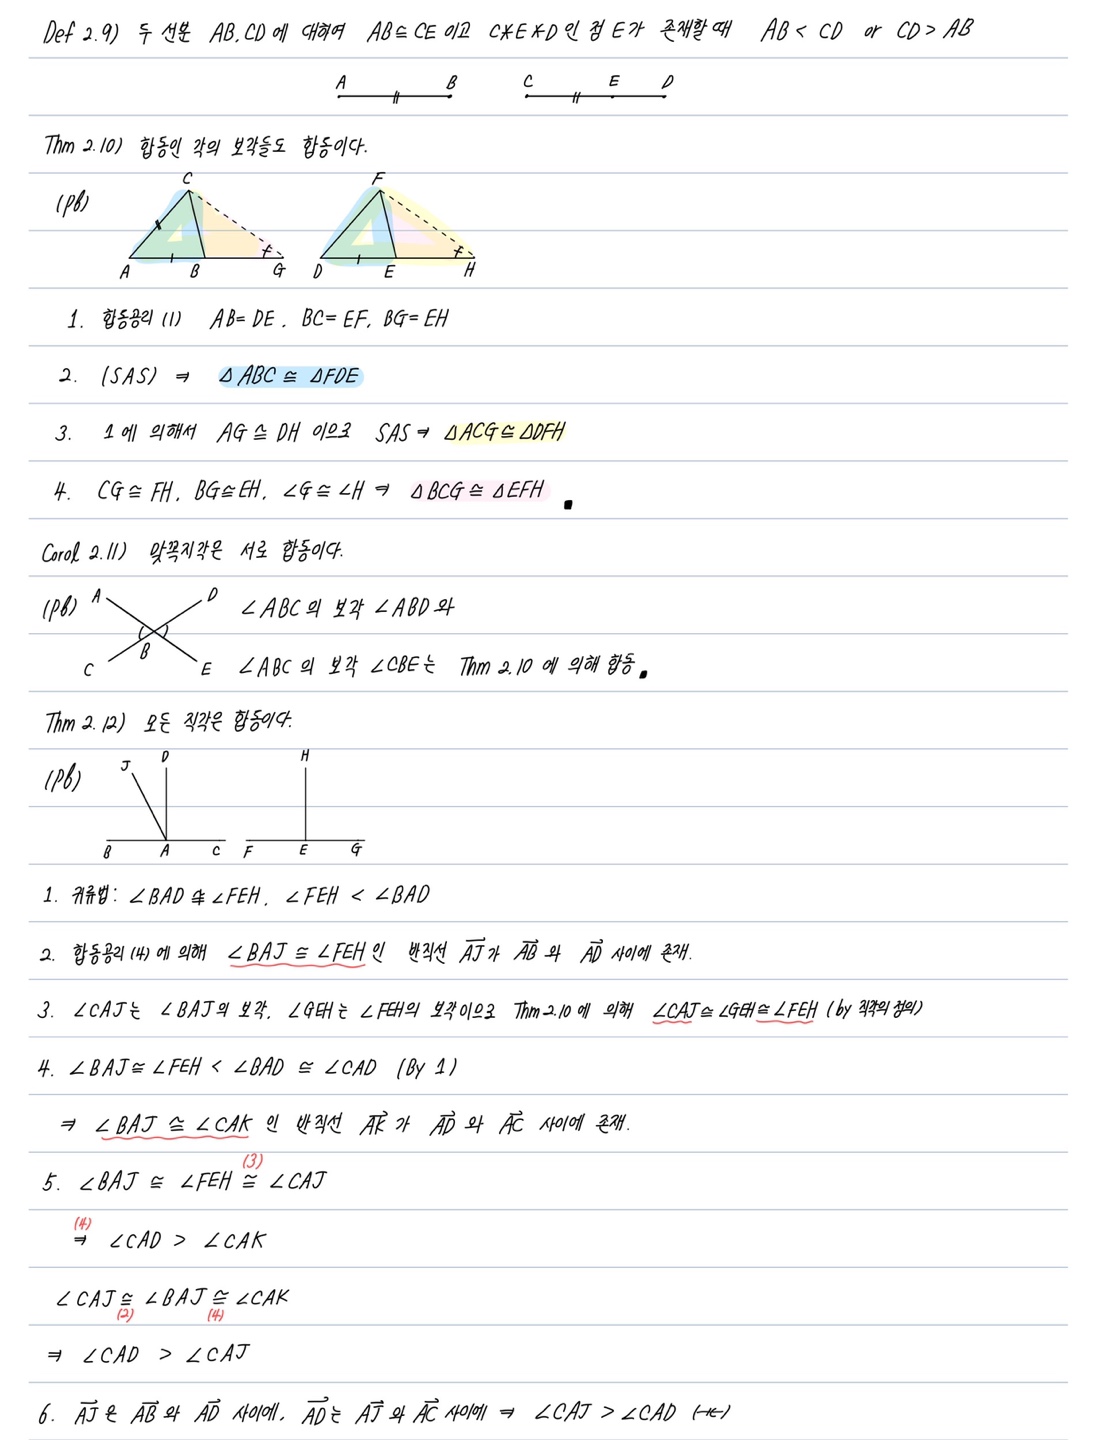 Def 2.9) 두 선분 AB, CD에 대하여 AB≅CE 이고 C*E*D인 점 E가 존재할 때 AB < CD or CD > AB
A B C E D
Thm 2.10) 합동인 각의 보각들도 합동이다.
(pf)
C F
A B G D E H
1. 합동공리 (1) AB=DE, BC=EF, BG=EH
2. (SAS) ⇒ △ABC ≅ △FDE
3. 1에 의해서 AG≅DH 이으로 SAS ⇒ △ACG≅△DFH
4. CG≅FH, BG≅EH, ∠G≅∠H ⇒ △BCG≅△EFH ■
Corol 2.11) 맞꼭지각은 서로 합동이다.
(pf) A D ∠ABC의 보각 ∠ABD와
B
C E ∠ABC의 보각 ∠CBE는 Thm 2.10에 의해 합동 ■
Thm 2.12) 모든 직각은 합동이다.
(pf)
J D H
B A C F E G
1. 귀류법: ∠BAD ≇ ∠FEH, ∠FEH < ∠BAD
2. 합동공리 (4)에 의해 ∠BAJ ≅ ∠FEH인 반직선 AJ가 AB와 AD 사이에 존재.
3. ∠CAJ는 ∠BAJ의 보각, ∠GEH는 ∠FEH의 보각이으로 Thm 2.10에 의해 ∠CAJ≅∠GEH≅∠FEH (by 직각의 정의)
4. ∠BAJ≅∠FEH < ∠BAD ≅ ∠CAD (By 1)
⇒ ∠BAJ ≅ ∠CAK인 반직선 AK가 AD와 AC 사이에 존재.
5. ∠BAJ ≅ ∠FEH ≅(3) ∠CAJ
(4)
⇒ ∠CAD > ∠CAK
∠CAJ ≅(2) ∠BAJ ≅(4) ∠CAK
⇒ ∠CAD > ∠CAJ
6. AJ은 AB와 AD 사이에, AD는 AJ와 AC 사이에 ⇒ ∠CAJ > ∠CAD (→←)